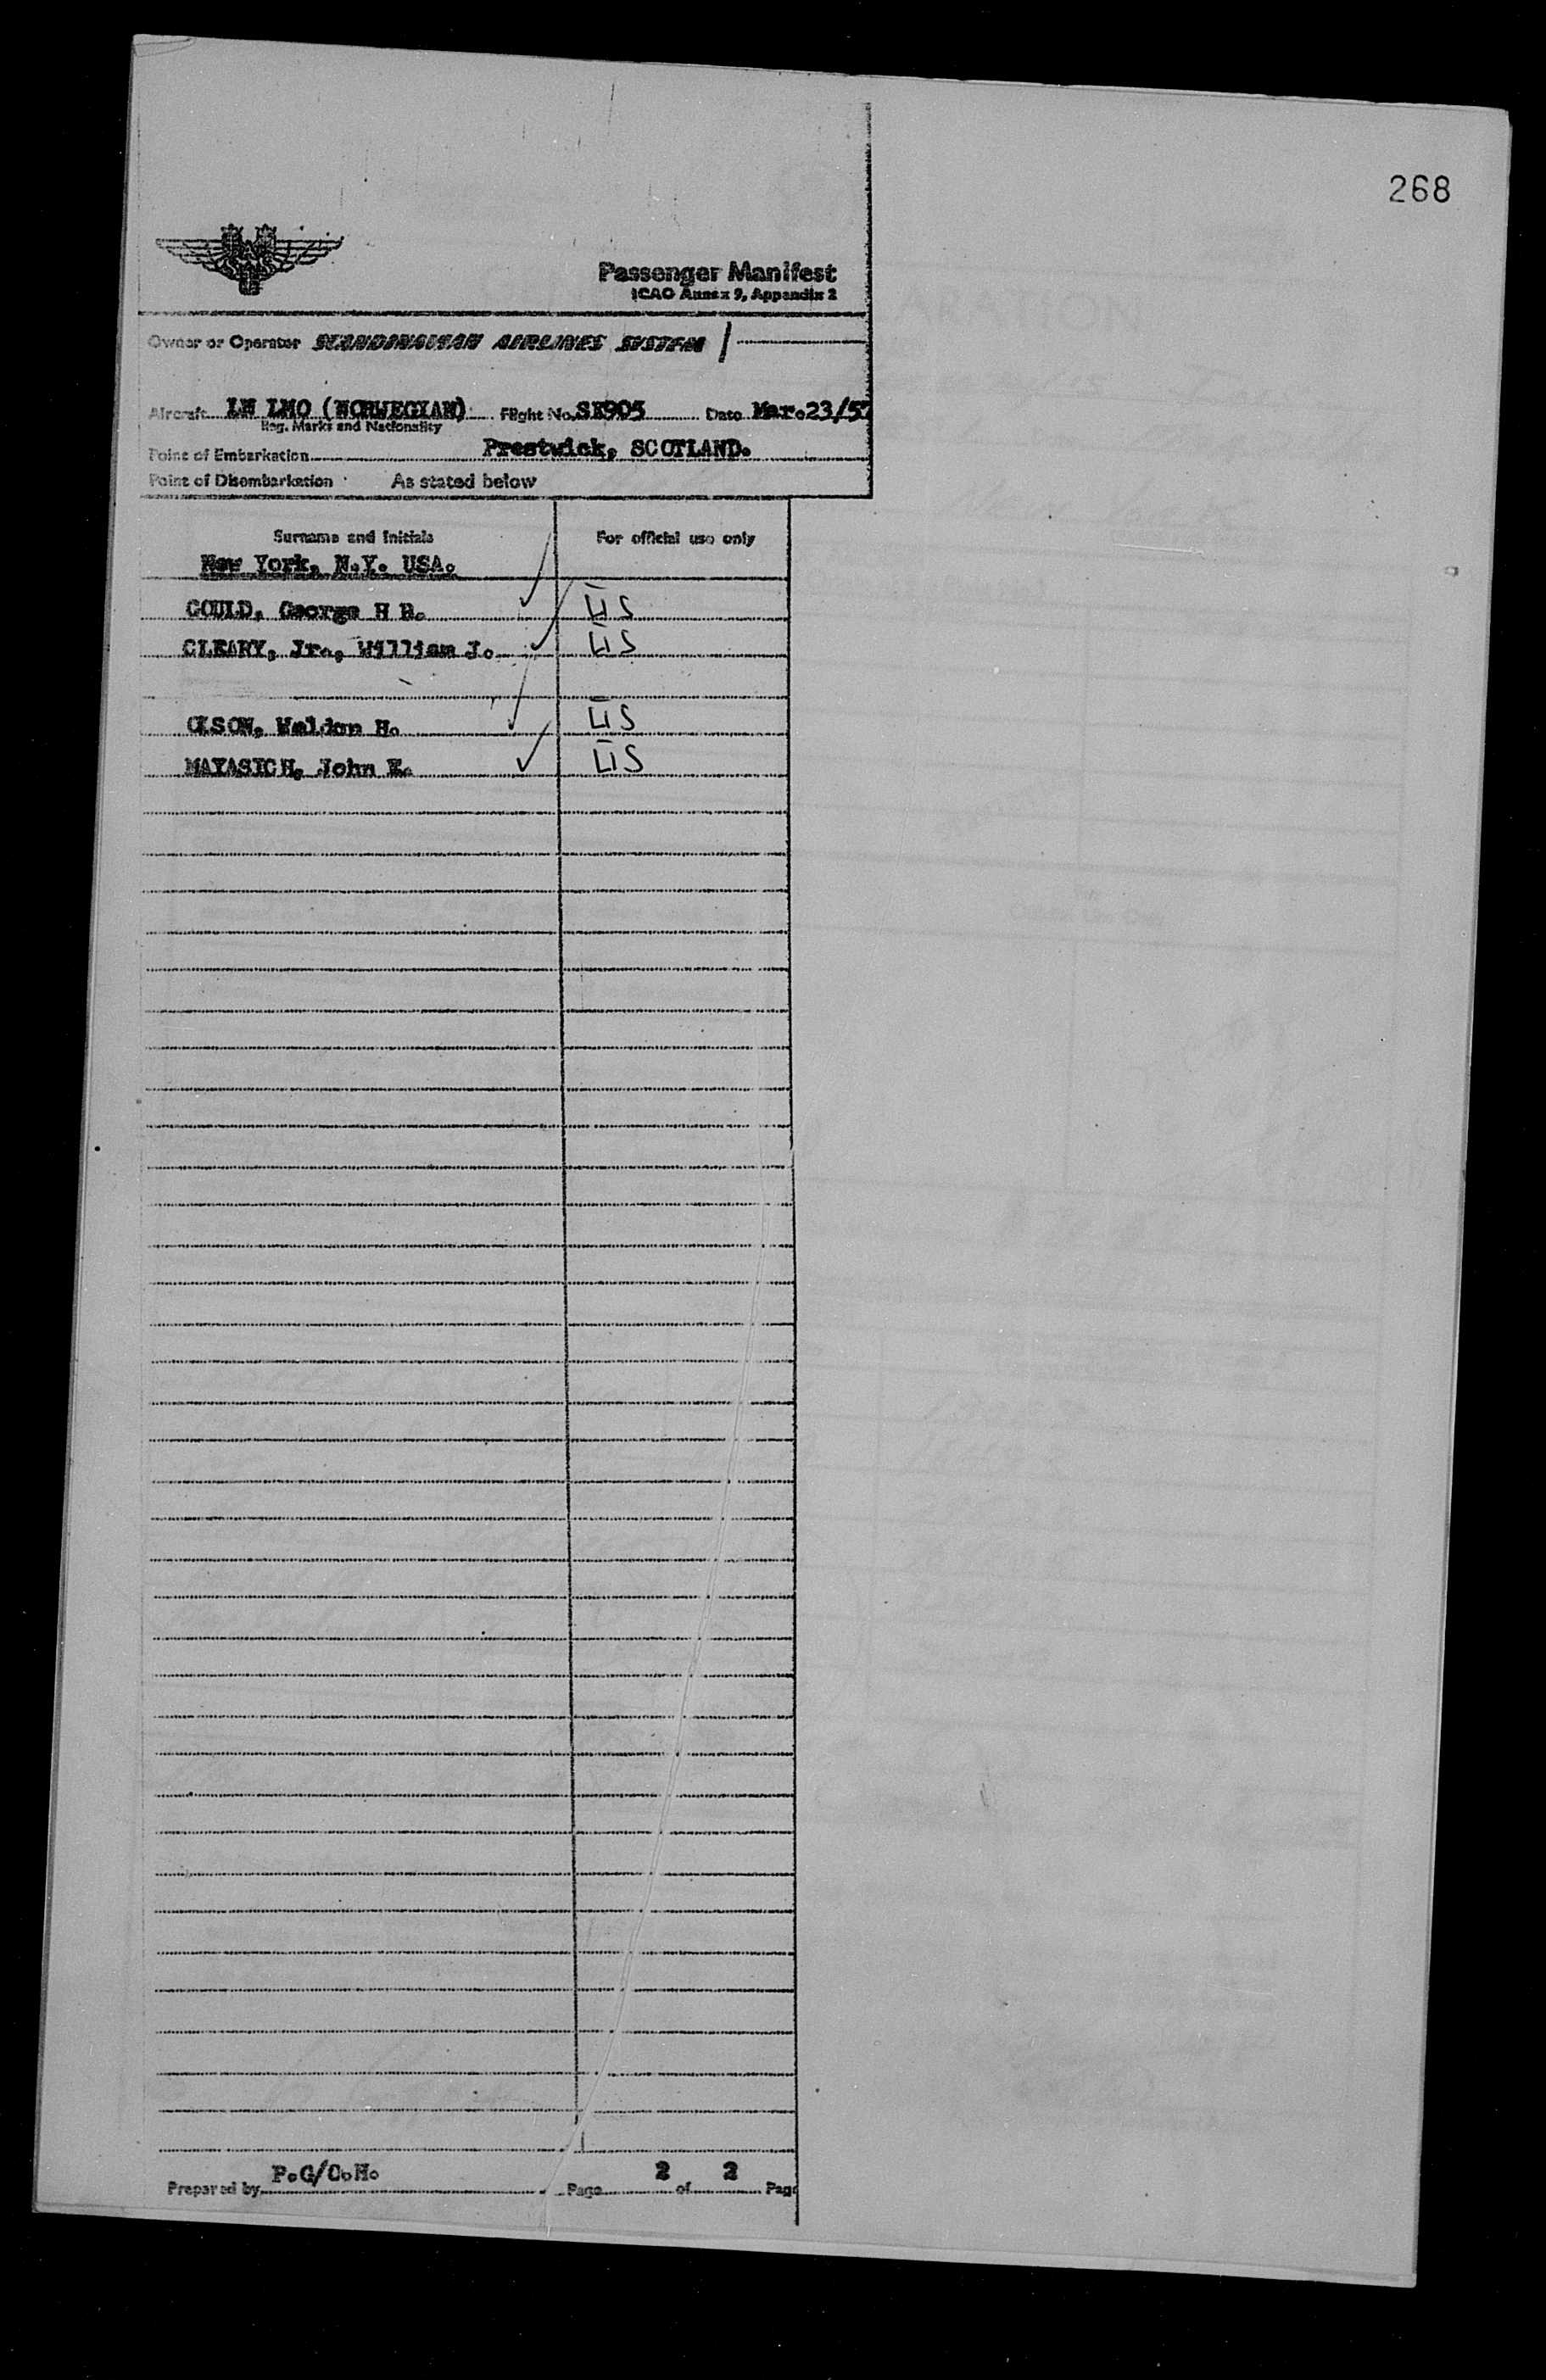 268
Passenger Manifest
ICAO Annex 9, Appendix 2
Owner or Operator SCANDINAVIAN AIRLINES SYSTEM
Aircraft LN LMO (NORWEGIAN) Flight No. SK905 Date Mar.23/57
Reg. Marks and Nationality
Point of Embarkation Prestwick, SCOTLAND.
Point of Disembarkation As stated below
Surname and Initials For official use only
New York, N.Y. USA.
GOULD, George H B. US
CLEARY, Jr., William J. US
OLSON, Weldon H. US
MAYASICH, John E. US
Prepared by P.G/C.H. Page 2 of 2 Page